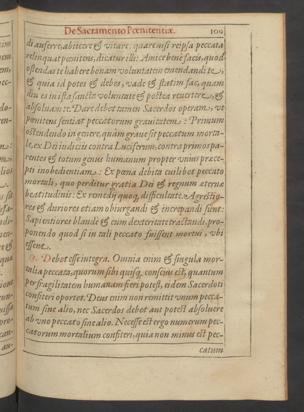 De Sacramento Pœnitentiæ. 109
di auferre, abiicere & vitare, quare nisi reipsa peccata
relinquat penitens, dicatur illi: Amice bene facis, quod
ostendas te habere bonam voluntatem emendandi te,
& quia id potes & debes, vade & statim fac, quam
diu es in ista sancta voluntate & postea revertere, &
absoluam te. Dare debet tamen Sacerdos operam, ut
pœnitens sentiat peccatorum gravitatem: Primum
ostendendo in genere, quàm grave sit peccatum morta-
le, ex Dei iudiciis contra Luciferum, contra primos pa-
rentes & totum genus humanum propter unius præce-
pti inobedientiam: Ex pœna debita cuilibet peccato
mortali, quo perditur gratia Dei & regnum æternæ
beatitudinis: Ex remedij quoque, difficultate. Agrestio-
res & duriores etiam obiurgandi & increpandi sunt.
Sapientiores blandè & cum dexteritate tractandi, pro-
ponendo quod si in tali peccato fuissent mortui, ubi
essent.
Debet esse integra. Omnia enim & singula mor-
talia peccata, quorum sibi quisq; conscius est, quantum
per fragilitatem humanam fieri potest, eidem Sacerdoti
confiteri oportet. Deus enim non remittit unum pecca-
tum sine alio, nec Sacerdos debet aut potest absolvere
ab uno peccato sine alio. Necesse est ergo numerum pec-
catorum mortalium confiteri, quia non minus est pec-
catum